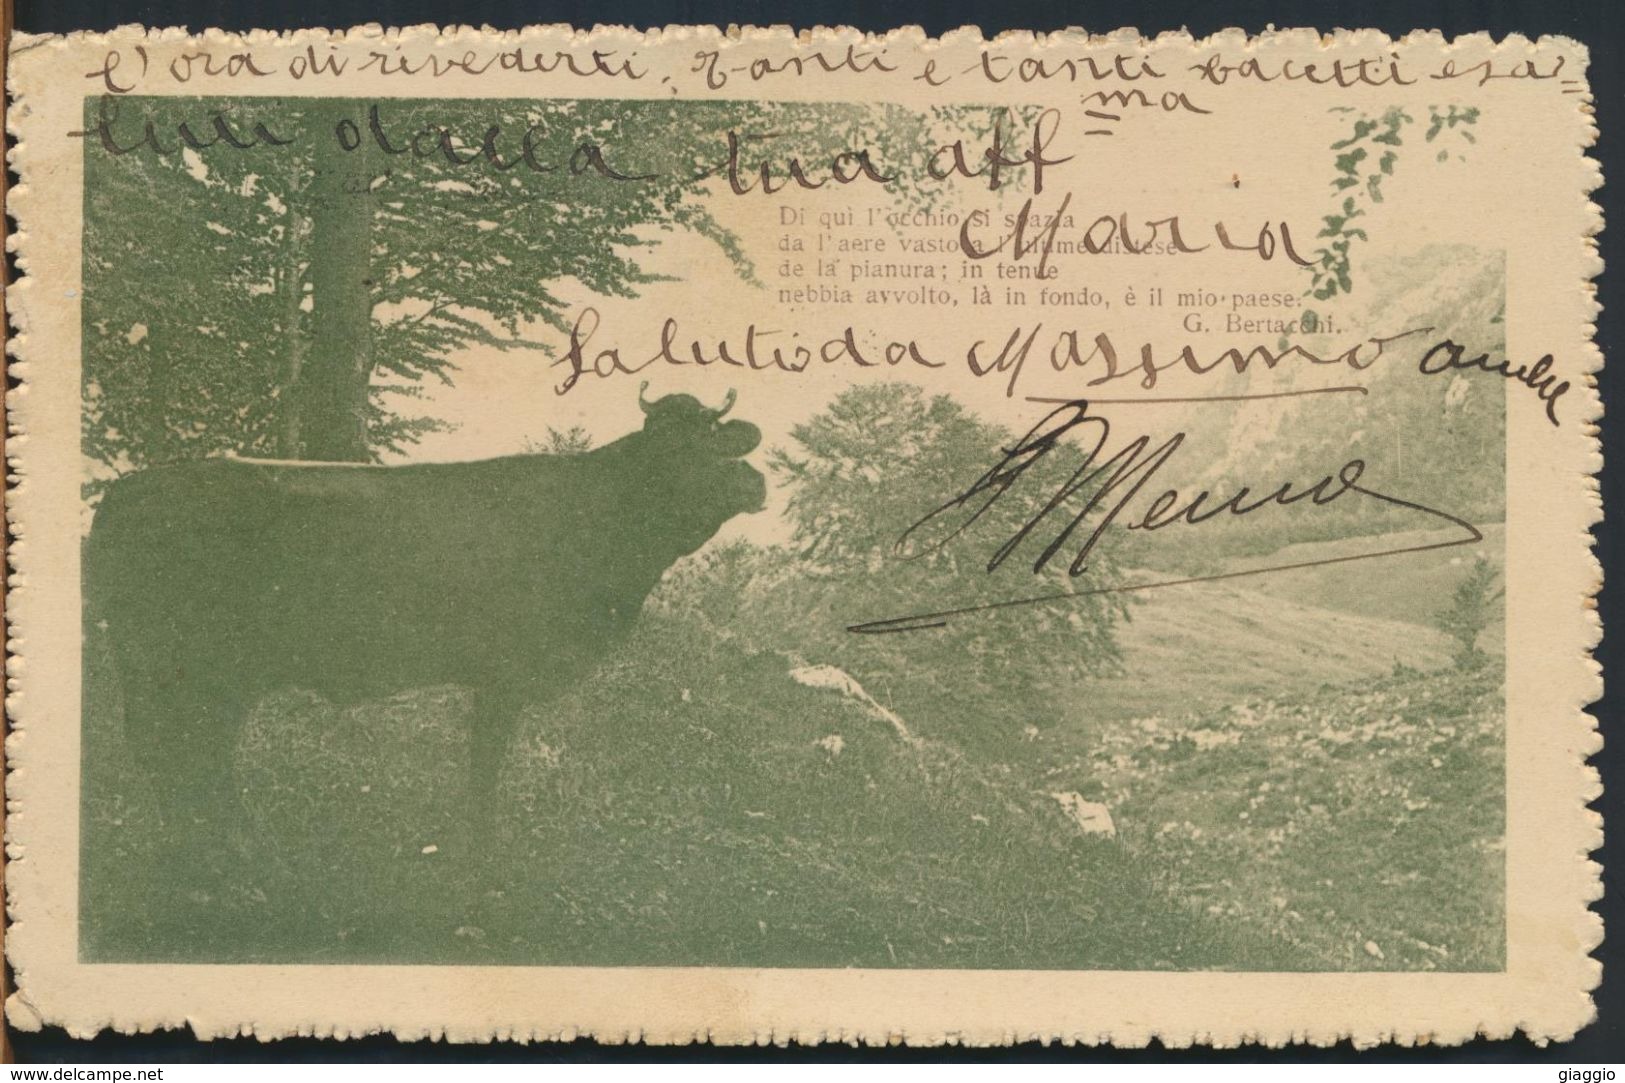 l'ora di rivederti. Tanti e tanti bacetti e sa=
luti dalla tua aff ma
Maria
Di qui l'occhio si spazia
da l'aere vasto a l'ultime distese
de la pianura; in tenue
nebbia avvolto, là in fondo, è il mio paese.
G. Bertacchi.
Saluti da Massimo anche
www.delcampe.net
giaggio